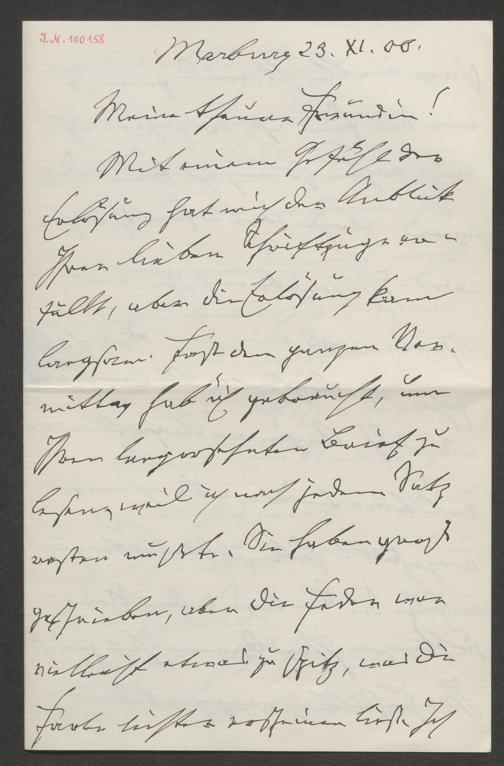 J.N. 100158
Marburg 23. XI. 06.
Meine theure Freundin!
Mit einem Gefühl der
Erlösung hat mich der Anblick
Ihrer lieben Schriftzüge er-
füllt, aber die Erlösung kam
langsam. Fast den ganzen Vor-
mittag hab ich gebraucht, um
Ihren langersehnten Brief zu
lesen, weil ich nach jedem Satz
rasten mußte. Sie haben groß
geschrieben, aber die Feder war
vielleicht etwas zu spitz, was die
Farbe lichter erscheinen ließ. Ich